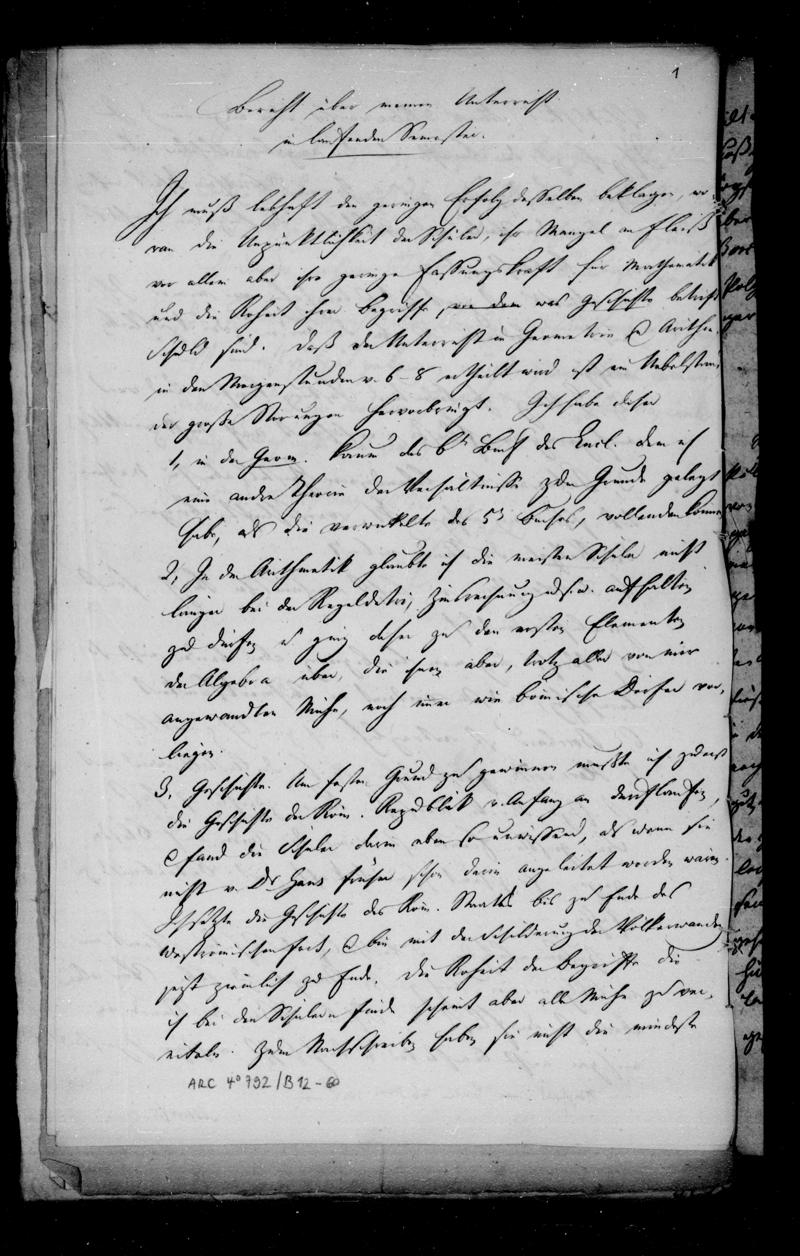 1
Bericht über meinen Unterricht
im laufenden Semester.
Ich muß lebhaft den geringen Erfolg desselben beklagen, wo
ran die Unpünktlichkeit der Schüler, ihr Mangel an Fleiß
vor allem aber ihre geringe Fassungskraft für Mathematik
und die Roheit ihrer Begriffe, was Geschichte betrifft
Schuld sind. Daß der Unterricht in Geometrie & Arithm.
in den Morgenstunden v. 6–8 ertheilt wird ist ein Uebelstand
der große Störungen hervorbringt. Ich habe daher
1, in der Geom. kaum das 6te Buch des Eucl. dem ich
eine andre Theorie der Verhältnisse zum Grunde gelegt
habe, als die verwickelte des 5ten Buches, vollenden können
2, In der Arithmetik glaubte ich die meisten Schüler nicht
länger bei der Regeldetri, Zinsrechnung u.s.w. aufhalten
zu dürfen & ging daher zu den ersten Elementen
der Algebra über, die ihnen aber, trotz aller von mir
angewandten Mühe, noch immer wie böhmische Dörfer vor,
liegen.
3, Geschichte. Um festen Grund zu gewinnen mußte ich zuerst
die Geschichte der Röm. Republik v. Anfang an durchlaufen,
& fand die Schüler darin eben so unwissend, als wenn sie
nicht v. Dr Gans früher schon darin angeleitet worden wären.
Ich setzte die Geschichte des Röm. Staats bis zu Ende des
Weströmischen fort, & bin mit der Schilderung der Völkerwander
jetzt ziemlich zu Ende. Die Roheit der Begriffe die
ich bei den Schülern finde scheint aber alle Mühe zu ver,
eiteln. Zum Nachschreiben haben sie nicht die mindeste
ARC 4° 792/B12-60